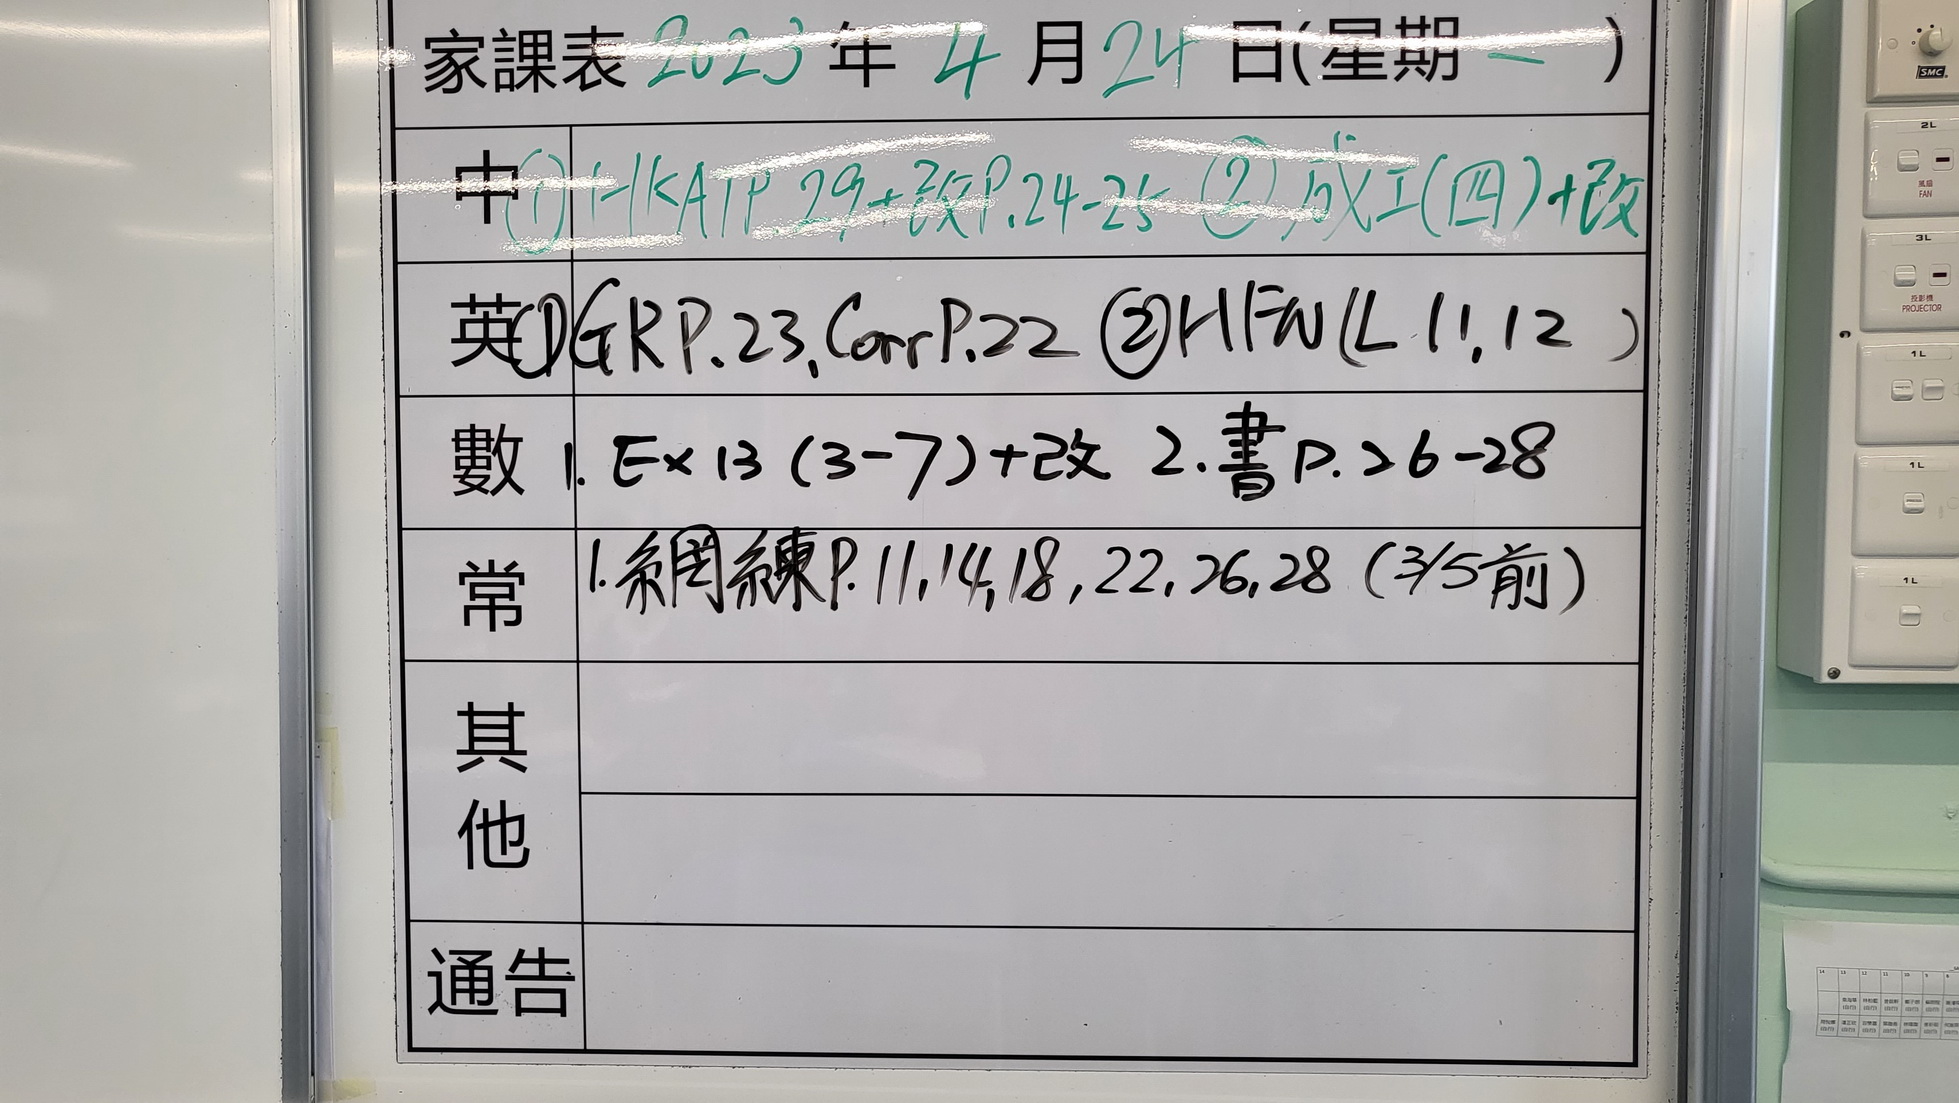 家課表 2023 年 4 月 24 日(星期 一 )
中 ① HKAT P.29+改P.24-25 ② 成工(四)+改
英 ① GR P.23, Corr P.22 ② HFW (L 11,12 )
數 1. Ex 13 (3-7)+改 2. 書 P.26-28
常 1. 網練 P.11,14,18,22,26,28 (3/5前)
其他
通告
SMC
2L
風扇
FAN
3L
投影機
PROJECTOR
1L
1L
1L